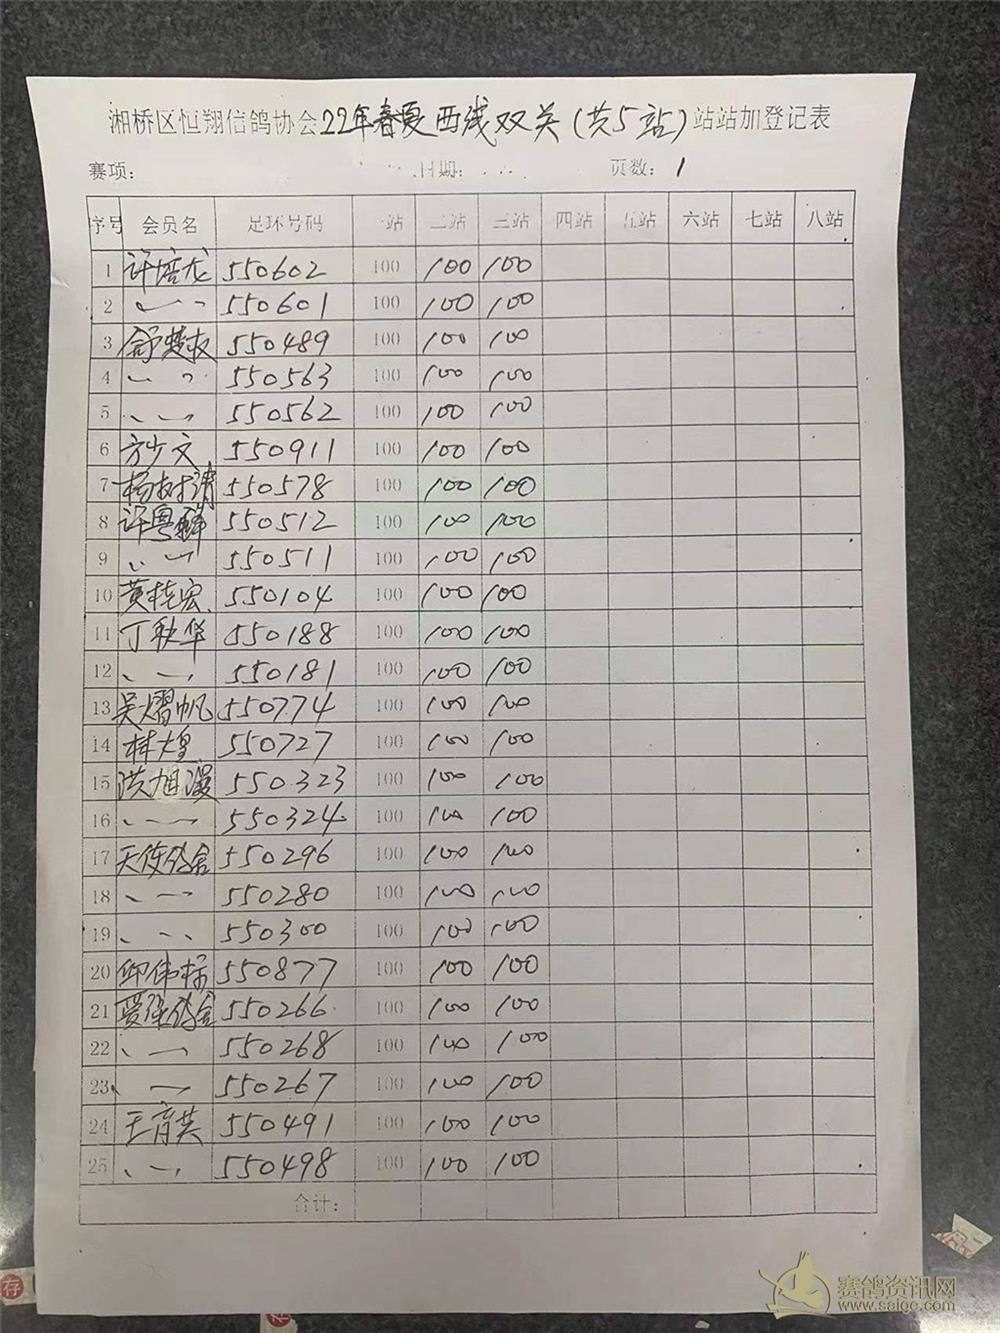 湘桥区恒翔信鸽协会22年春夏西线双关(共5站)站站加登记表
赛项: 日期: 页数: 1
序号 会员名 足环号码 一站 二站 三站 四站 五站 六站 七站 八站
1 许培龙 550602 100 100 100
2 〃 550601 100 100 100
3 舒楚 550489 100 100 100
4 〃 550563 100 100 100
5 〃 550562 100 100 100
6 方少文 550911 100 100 100
7 杨树清 550578 100 100 100
8 许粤 550512 100 100 100
9 〃 550511 100 100 100
10 黄桂宏 550104 100 100 100
11 丁秋华 550188 100 100 100
12 〃 550181 100 100 100
13 吴熠帆 550774 100 100 100
14 林煌 550727 100 100 100
15 洪旭漫 550323 100 100 100
16 〃 550324 100 100 100
17 天使鸽舍 550296 100 100 100
18 〃 550280 100 100 100
19 〃 550300 100 100 100
20 伟标 550877 100 100 100
21 鸽舍 550266 100 100 100
22 〃 550268 100 100 100
23 〃 550267 100 100 100
24 王育英 550491 100 100 100
25 〃 550498 100 100 100
合计:
存
赛鸽资讯网
www.saige.com